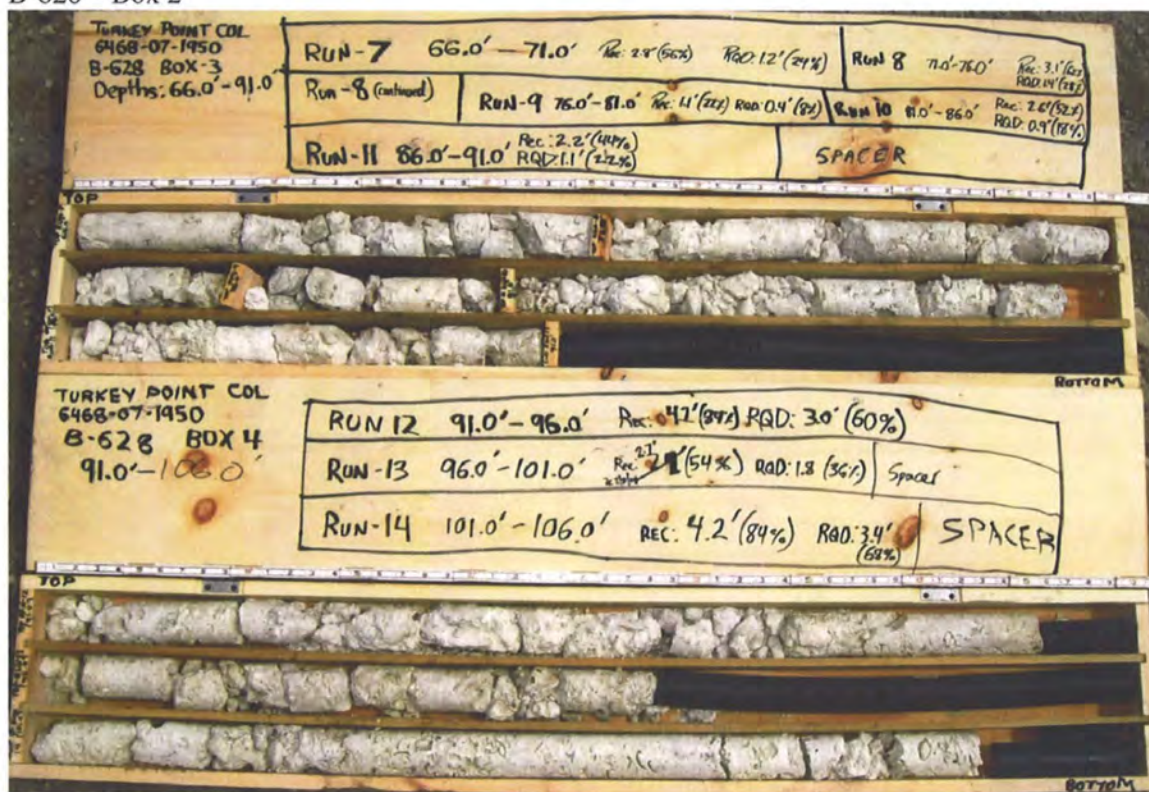 B-628 Box 2
TURKEY POINT COL
6468-07-1950
B-628 BOX-3
Depths: 66.0'-91.0'
RUN-7 66.0'-71.0' Rec: 2.8'(56%) RQD: 1.2'(24%)
RUN 8 71.0'-76.0' Rec: 3.1'(62%)
RQD: 1.4'(28%)
RUN-8 (continued)
RUN-9 76.0'-81.0' Rec: 1.1'(22%) RQD: 0.4'(8%)
RUN 10 81.0'-86.0' Rec: 2.6'(52%)
RQD: 0.9'(18%)
RUN-11 86.0'-91.0' Rec: 2.2'(44%)
RQD: 1.1'(22%)
SPACER
TOP
BOTTOM
TURKEY POINT COL
6468-07-1950
B-628 BOX 4
91.0'-106.0'
RUN 12 91.0'-96.0' Rec: 4.2'(84%) RQD: 3.0'(60%)
RUN-13 96.0'-101.0' Rec 2.7' (54%) RQD: 1.8 (36%) Spacer
RUN-14 101.0'-106.0' REC: 4.2'(84%) RQD: 3.4'
(68%)
SPACER
TOP
BOTTOM